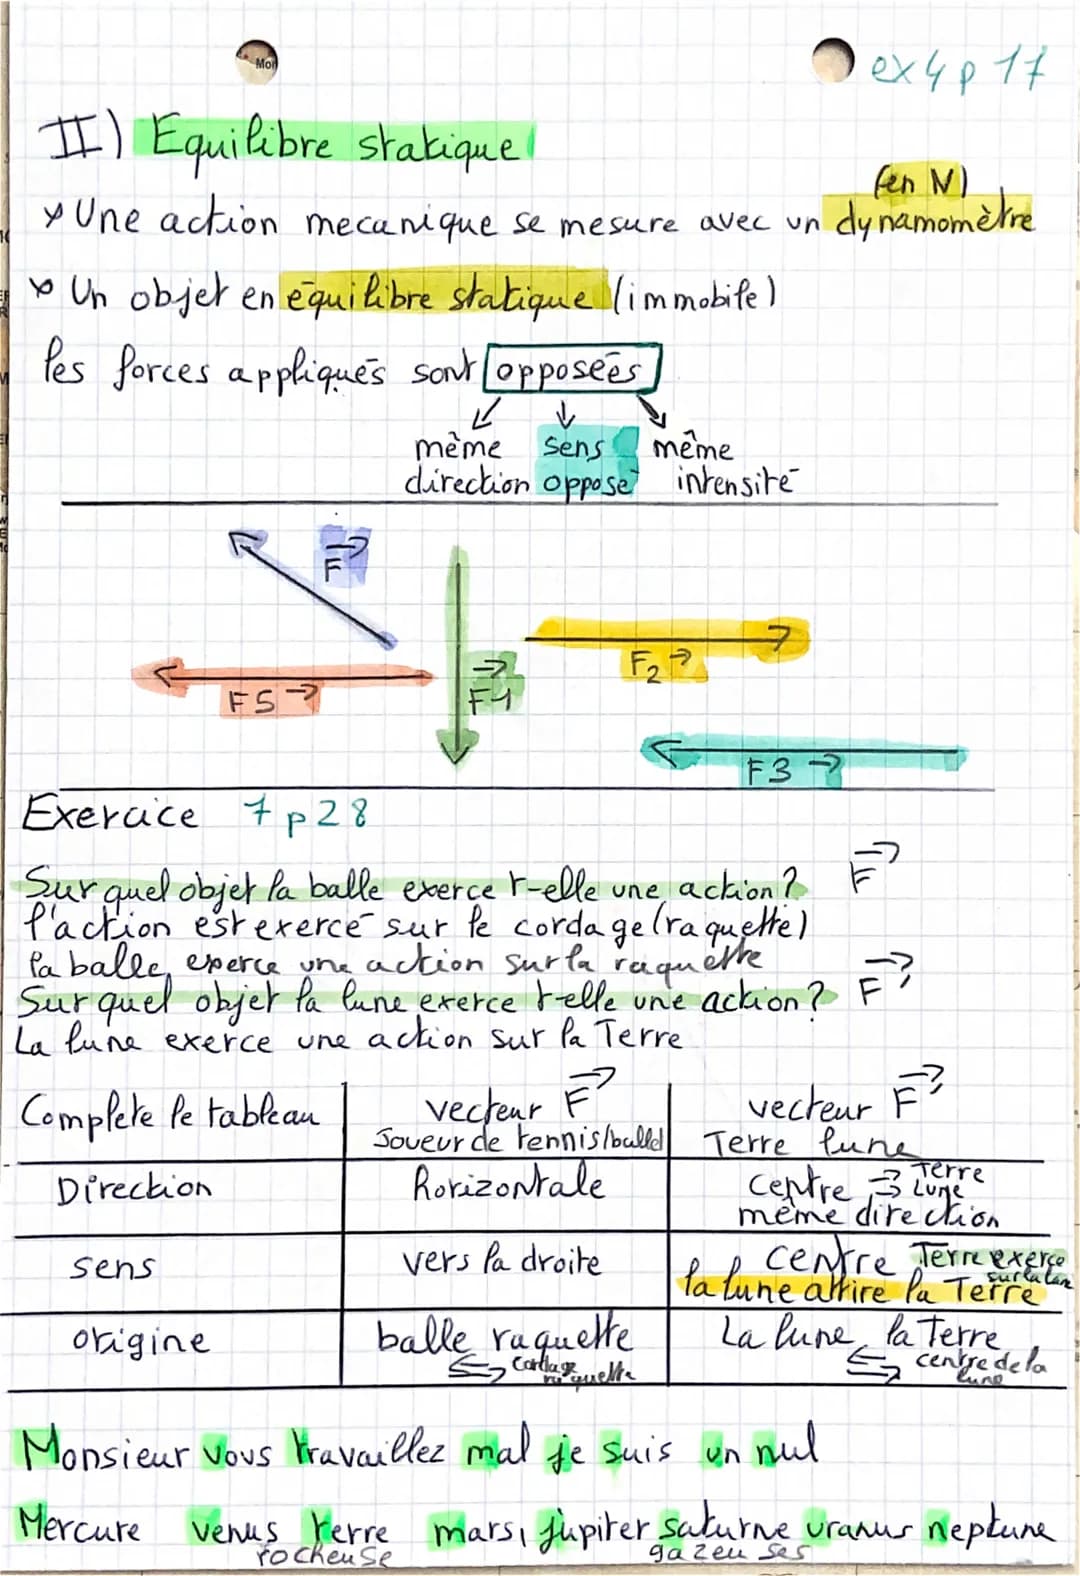 Mon
ex 4 p 17
II) Equilibre statique
(en N)
× Une action mecanique se mesure avec un dynamomètre
× Un objet en équilibre statique (immobile)
les forces appliqués sont opposées
même sens même
direction opposé intensité
F→
F5→
F1→
F2→
F3→
Exercice 7 p 28
Sur quel objet la balle exerce t-elle une action? F→
l'action est exercé sur le cordage (raquette)
la balle, exerce une action sur la raquette
Sur quel objet la lune exerce t-elle une action? F'→
La lune exerce une action sur la Terre
Complete le tableau vecteur F→ vecteur F'→
Joueur de tennis/balle Terre lune
Direction horizontale centre → Terre Lune
même direction
sens vers la droite centre Terre exerce
la lune attire la Terre
origine balle raquette La lune, la Terre
cordage raquette centre de la lune
Monsieur vous travaillez mal je suis un nul
Mercure venus terre mars, jupiter saturne uranus neptune
rocheuse gazeuses